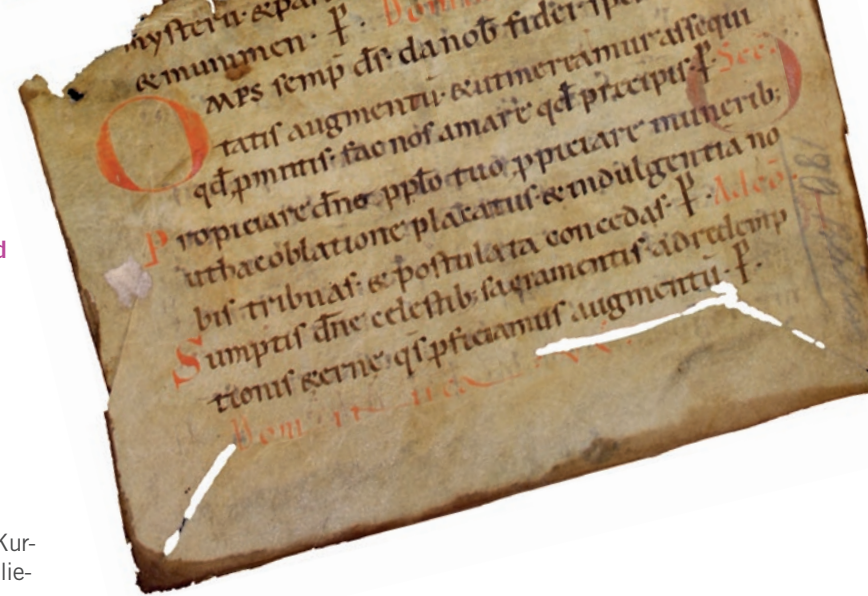 mysterii· & par
& munimen· P̶. Domi
OMPS semp d̅s· da nob̅ fidei· spei
tatis augmentū· & ut mereamur assequi
qd̅ pmittis· fac nos amare qd̅ precipis· P̶. Secr̄
Propiciare dn̅e pplo tuo ppiciare munerib;
ut hac oblatione placatus· & indulgentia no
bis tribuas· & postulata concedas· P̶. Ad co̅·
Sumptis dn̅e celestib; sacramentis ad redemp
tionis & erne· qs̅ pficiamus augmentū· P̶.
Dom
d
Kur-
lie-